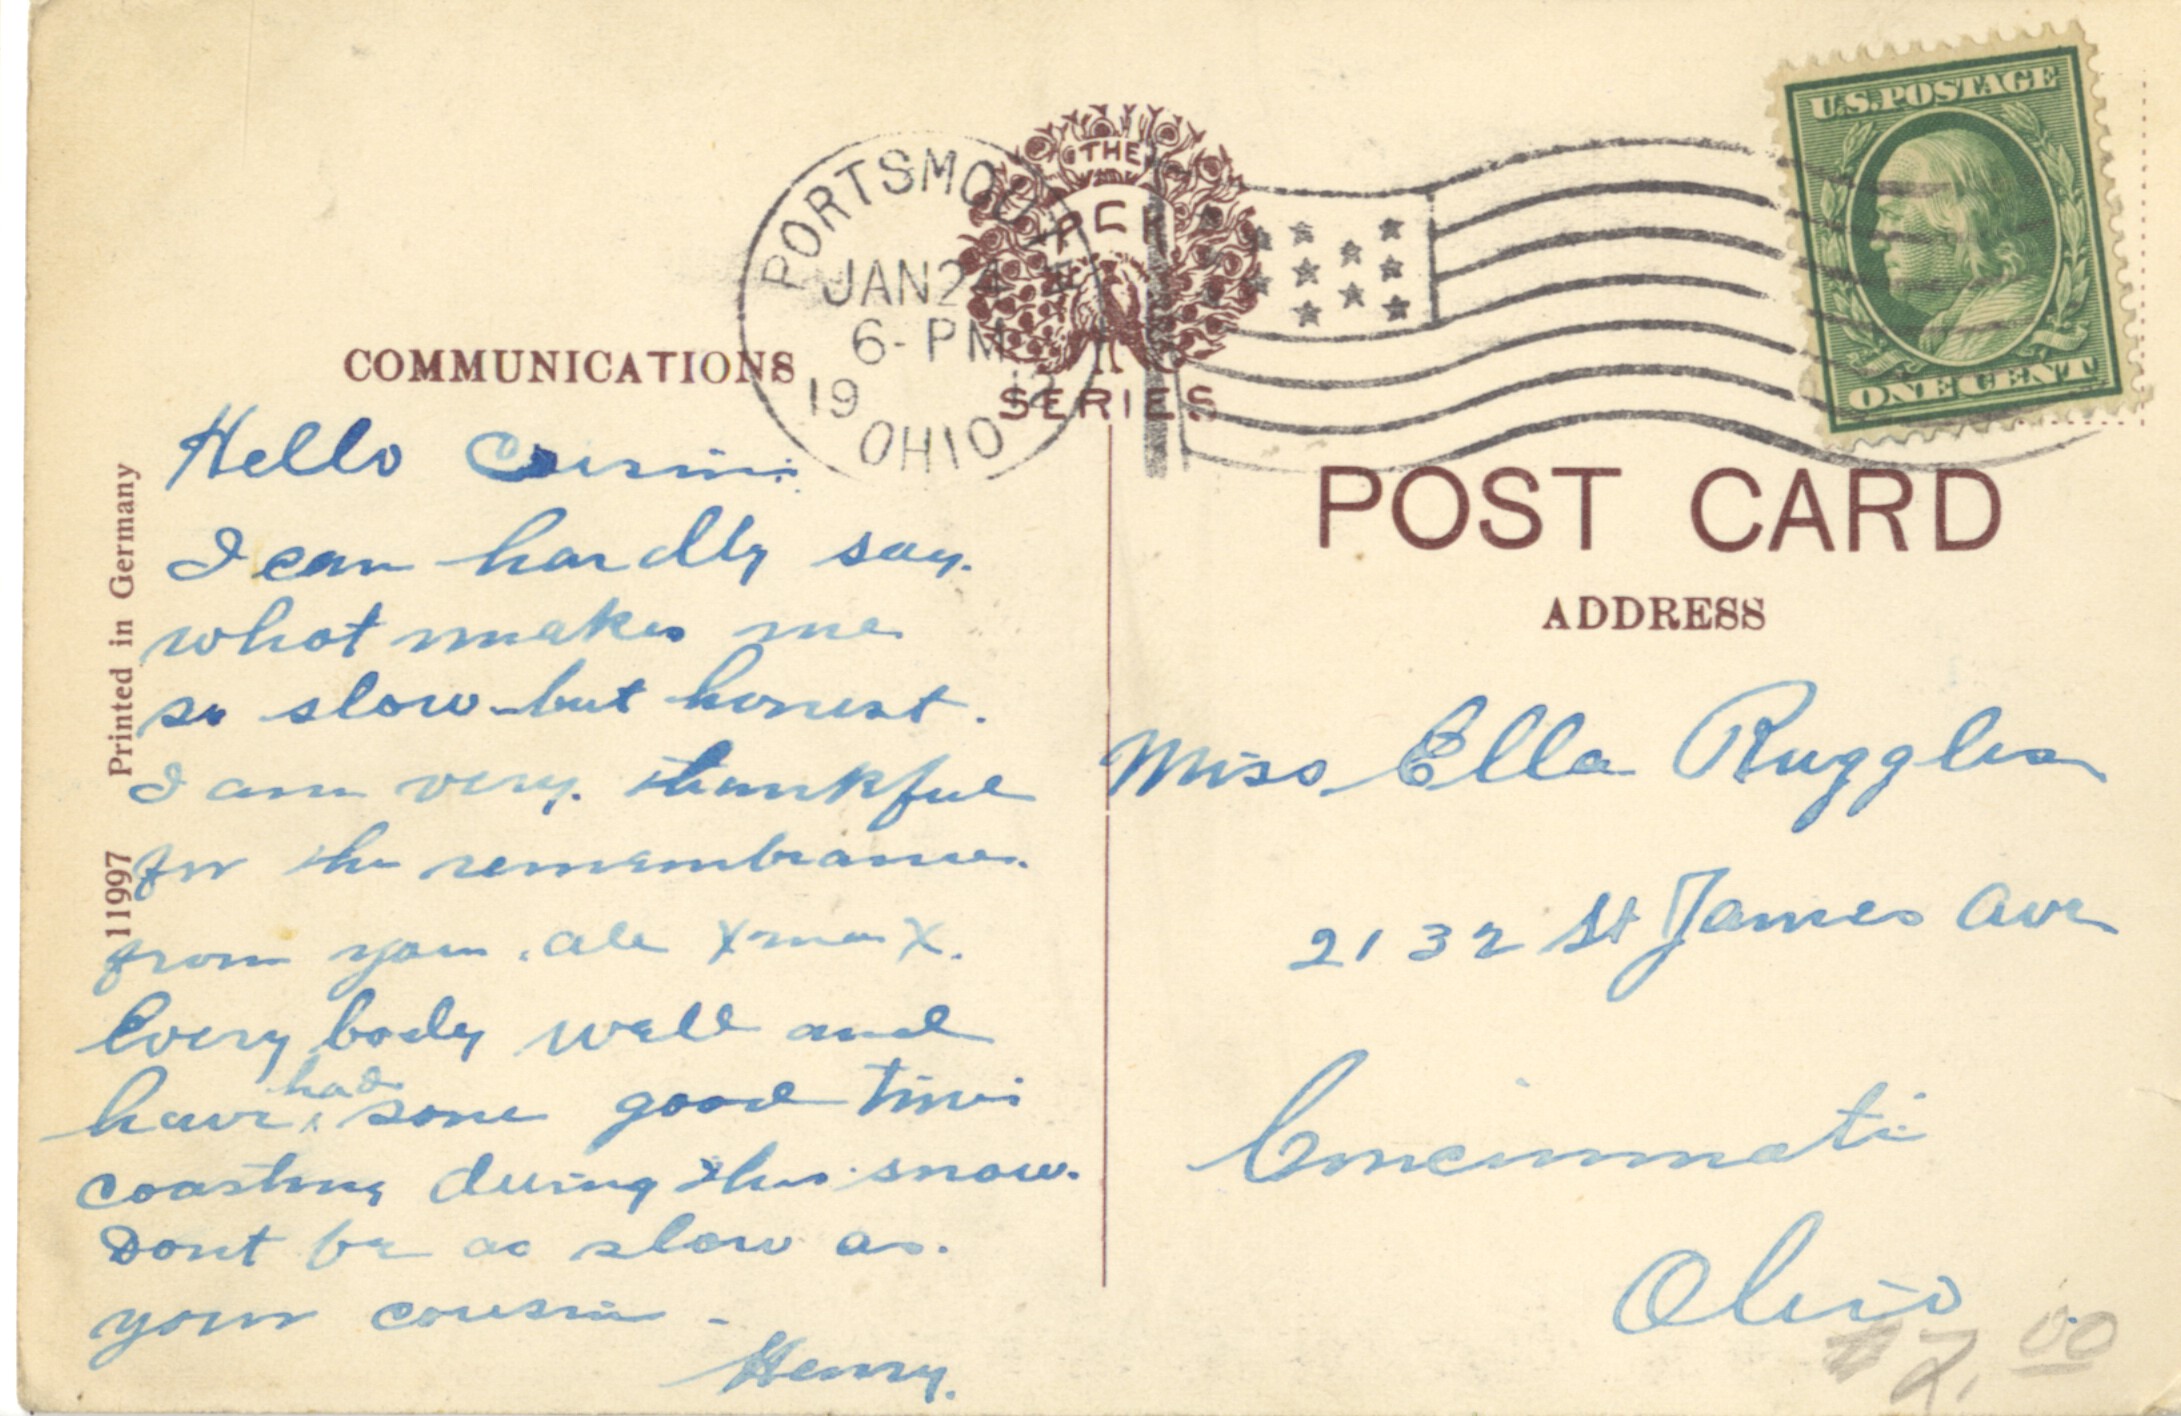 THE
PCK
SERIES
PORTSMOUTH
JAN 24
6-PM
19 12
OHIO
U.S. POSTAGE
ONE CENT
COMMUNICATIONS
POST CARD
ADDRESS
11997 Printed in Germany
Hello Cousin
I can hardly say.
what makes me
so slow but honest.
I am very. thankful
for the remembrances.
from you all Xmas X.
Every body well and
have had some good times
coasting during this snow.
Dont be as slow as.
your cousin -
Henry.
Miss Ella Ruggles
2132 St James Ave
Cincinnati
Ohio.
$2.00